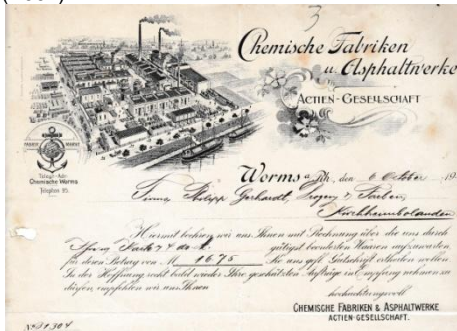 3
Chemische Fabriken
u. Asphaltwerke
ACTIEN-GESELLSCHAFT
FABRIK MARKE
Telegr.-Adr.
Chemische Worms
Telephon 95.
Worms a/Rh., den 6 October 19
Firma Philipp Gerhardt, Drogen & Farben,
Kirchheimbolanden
Hiermit beehren wir uns Ihnen mit Rechnung über die uns durch
gütigst beorderten Waaren aufzuwarten,
für deren Betrag von M 16 75 Sie uns gefl. Gutschrift ertheilen wollen.
In der Hoffnung recht bald wieder Ihre geschätzten Aufträge in Empfang nehmen zu
dürfen, empfehlen wir uns Ihnen
hochachtungsvoll
CHEMISCHE FABRIKEN & ASPHALTWERKE
ACTIEN-GESELLSCHAFT.
№ 31304